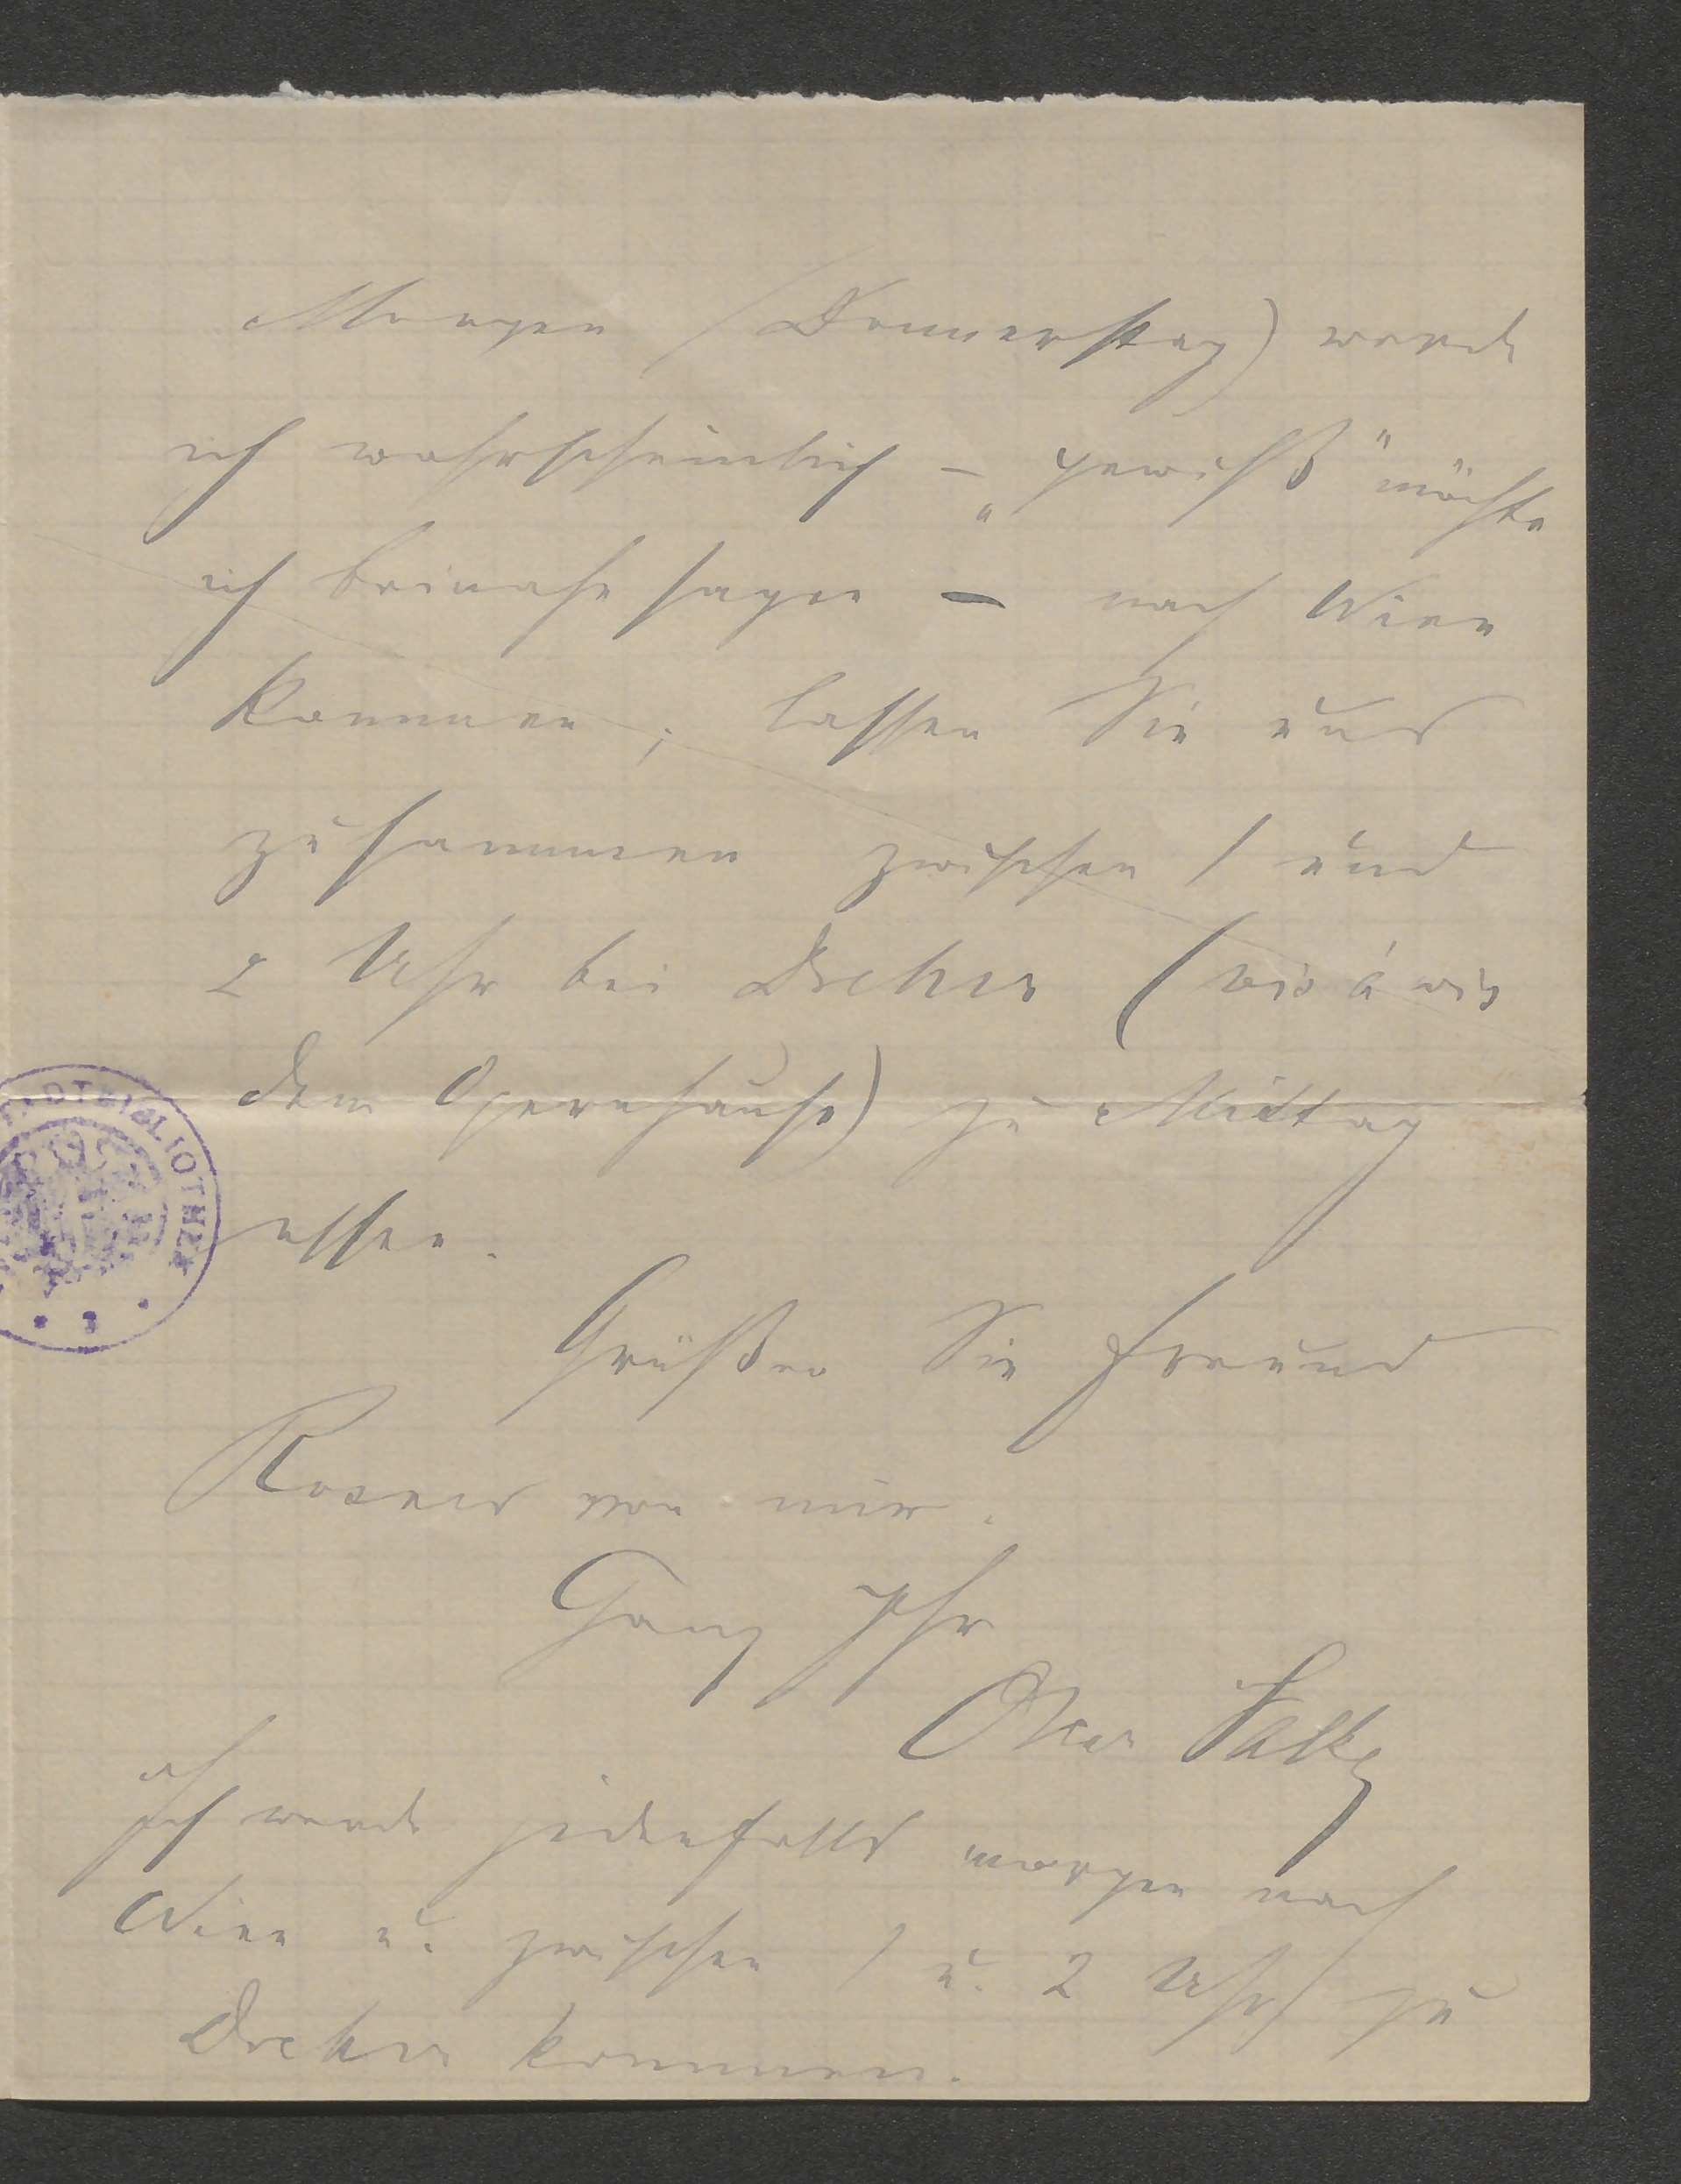 Morgen (Donnerstag) werde
ich wahrscheinlich – „gewiß“ möchte
ich beinahe sagen – nach Wien
kommen; lassen Sie uns
zusammen zwischen 1 und
2 Uhr bei Dreher (vis à vis
dem Opernhause) zu Mittag
essen.
Grüßen Sie Freund
von mir.
Ganz Ihr
Ich werde jedenfalls morgen nach
Wien u. zwischen 1 u. 2 Uhr zu
Dreher kommen.
STADTBIBLIOTHEK